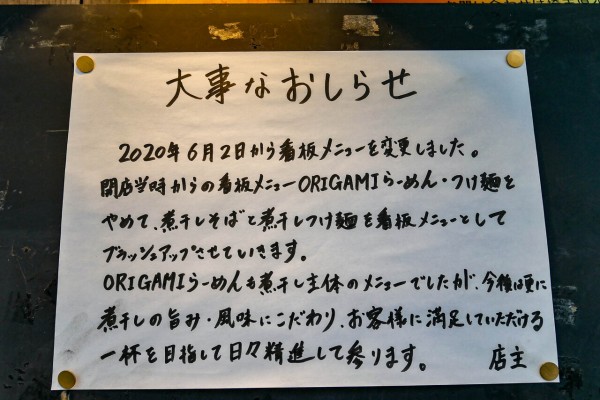 大事なおしらせ
2020年6月2日から看板メニューを変更しました。
開店当時からの看板メニューORIGAMIらーめん・つけ麺を
やめて、煮干しそばと煮干しつけ麺を看板メニューとして
ブラッシュアップさせていきます。
ORIGAMIらーめんも煮干し主体のメニューでしたが、今後は更に
煮干しの旨み・風味にこだわり、お客様に満足していただける
一杯を目指して日々精進して参ります。 店主